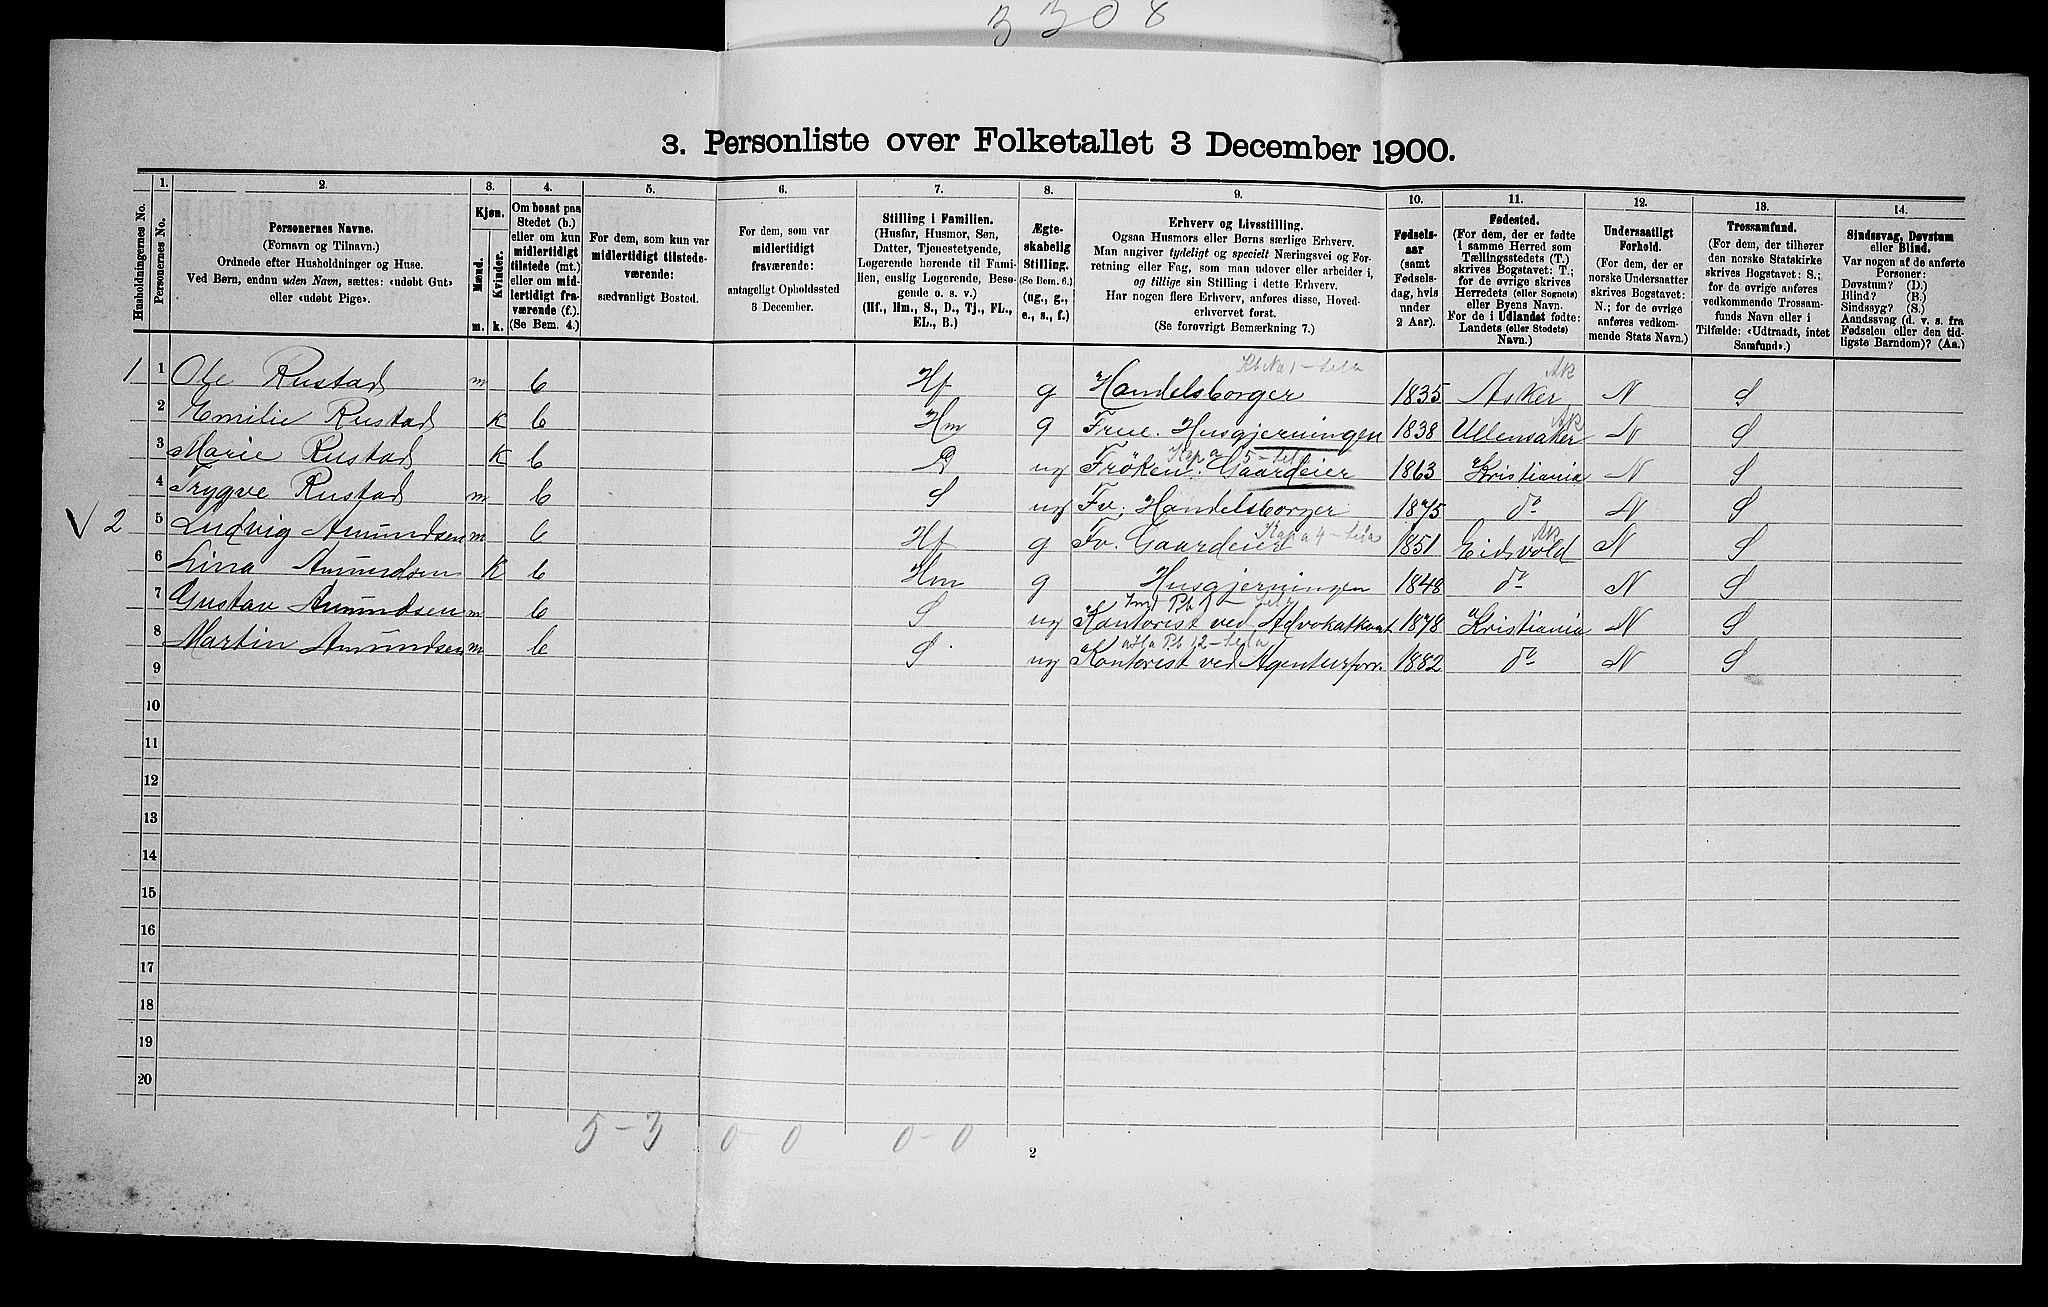 3308
3. Personliste over Folketallet 3 December 1900.
Husholdningernes No.
1. Personernes No.
2. Personernes Navne.
(Fornavn og Tilnavn.)
Ordnede efter Husholdninger og Huse.
Ved Børn, endnu uden Navn, sættes: «udøbt Gut»
eller «udøbt Pige».
3. Kjøn.
Mænd. m.
Kvinder. k.
4. Om bosat paa
Stedet (b.)
eller om kun
midlertidigt
tilstede (mt.)
eller om mid-
lertidigt fra-
værende (f.).
(Se Bem. 4.)
5. For dem, som kun var
midlertidigt tilstede-
værende:
sædvanligt Bosted.
6. For dem, som var
midlertidigt
fraværende:
antageligt Opholdssted
3 December.
7. Stilling i Familien.
(Husfar, Husmor, Søn,
Datter, Tjenestetyende,
Logerende hørende til Fami-
lien, enslig Logerende, Besø-
gende o. s. v.)
(Hf., Hm., S., D., Tj., FL.,
EL., B.)
8. Ægte-
skabelig
Stilling.
(Se Bem. 6.)
(ug., g.,
e., s., f.)
9. Erhverv og Livsstilling.
Ogsaa Husmors eller Børns særlige Erhverv.
Man angiver tydeligt og specielt Næringsvei og For-
retning eller Fag, som man udøver eller arbeider i,
og tillige sin Stilling i dette Erhverv.
Har nogen flere Erhverv, anføres disse, Hoved-
erhvervet først.
(Se forøvrigt Bemærkning 7.)
10. Fødsels-
aar
(samt
Fødsels-
dag, hvis
under
2 Aar).
11. Fødested.
(For dem, der er fødte
i samme Herred som
Tællingsstedets (T.)
skrives Bogstavet: T.;
for de øvrige skrives
Herredets (eller Sognets)
eller Byens Navn.
For de i Udlandet fødte:
Landets (eller Stedets)
Navn.)
12. Undersaatligt
Forhold.
(For dem, der er
norske Undersaatter
skrives Bogstavet:
N.; for de øvrige
anføres vedkom-
mende Stats Navn.)
13. Trossamfund.
(For dem, der tilhører
den norske Statskirke
skrives Bogstavet: S.;
for de øvrige anføres
vedkommende Trossam-
funds Navn eller i
Tilfælde: «Udtraadt, intet
Samfund».)
14. Sindssvag, Døvstum
eller Blind.
Var nogen af de anførte
Personer:
Døvstum? (D.)
Blind? (B.)
Sindssyg? (S.)
Aandssvag (d. v. s. fra
Fødselen eller den tid-
ligste Barndom)? (Aa.)
1 1 Ole Rustad m b Hf g Handelsborger 1835 Asker Ak N S
2 Emilie Rustad k b Hm g Frue. Husgjerningen 1838 Ullensaker Ak N S
3 Marie Rustad k b D ug Frøken. Gaardeier 1863 Kristiania N S
4 Trygve Rustad m b S ug Fv. Handelsborger 1875 do N S
V 2 5 Ludvig Amundsen m b Hf g Fv. Gaardeier 1851 Eidsvold Ak N S
6 Lina Amundsen k b Hm g Husgjerningen 1848 do N S
7 Gustav Amundsen m b S ug Kontorist ved Advokatkont 1878 Kristiania N S
8 Martin Amundsen m b S ug Kontorist ved Agenturforr. 1882 do N S
9
10
11
12
13
14
15
16
17
18
19
20
5-3 0-0 0-0
2